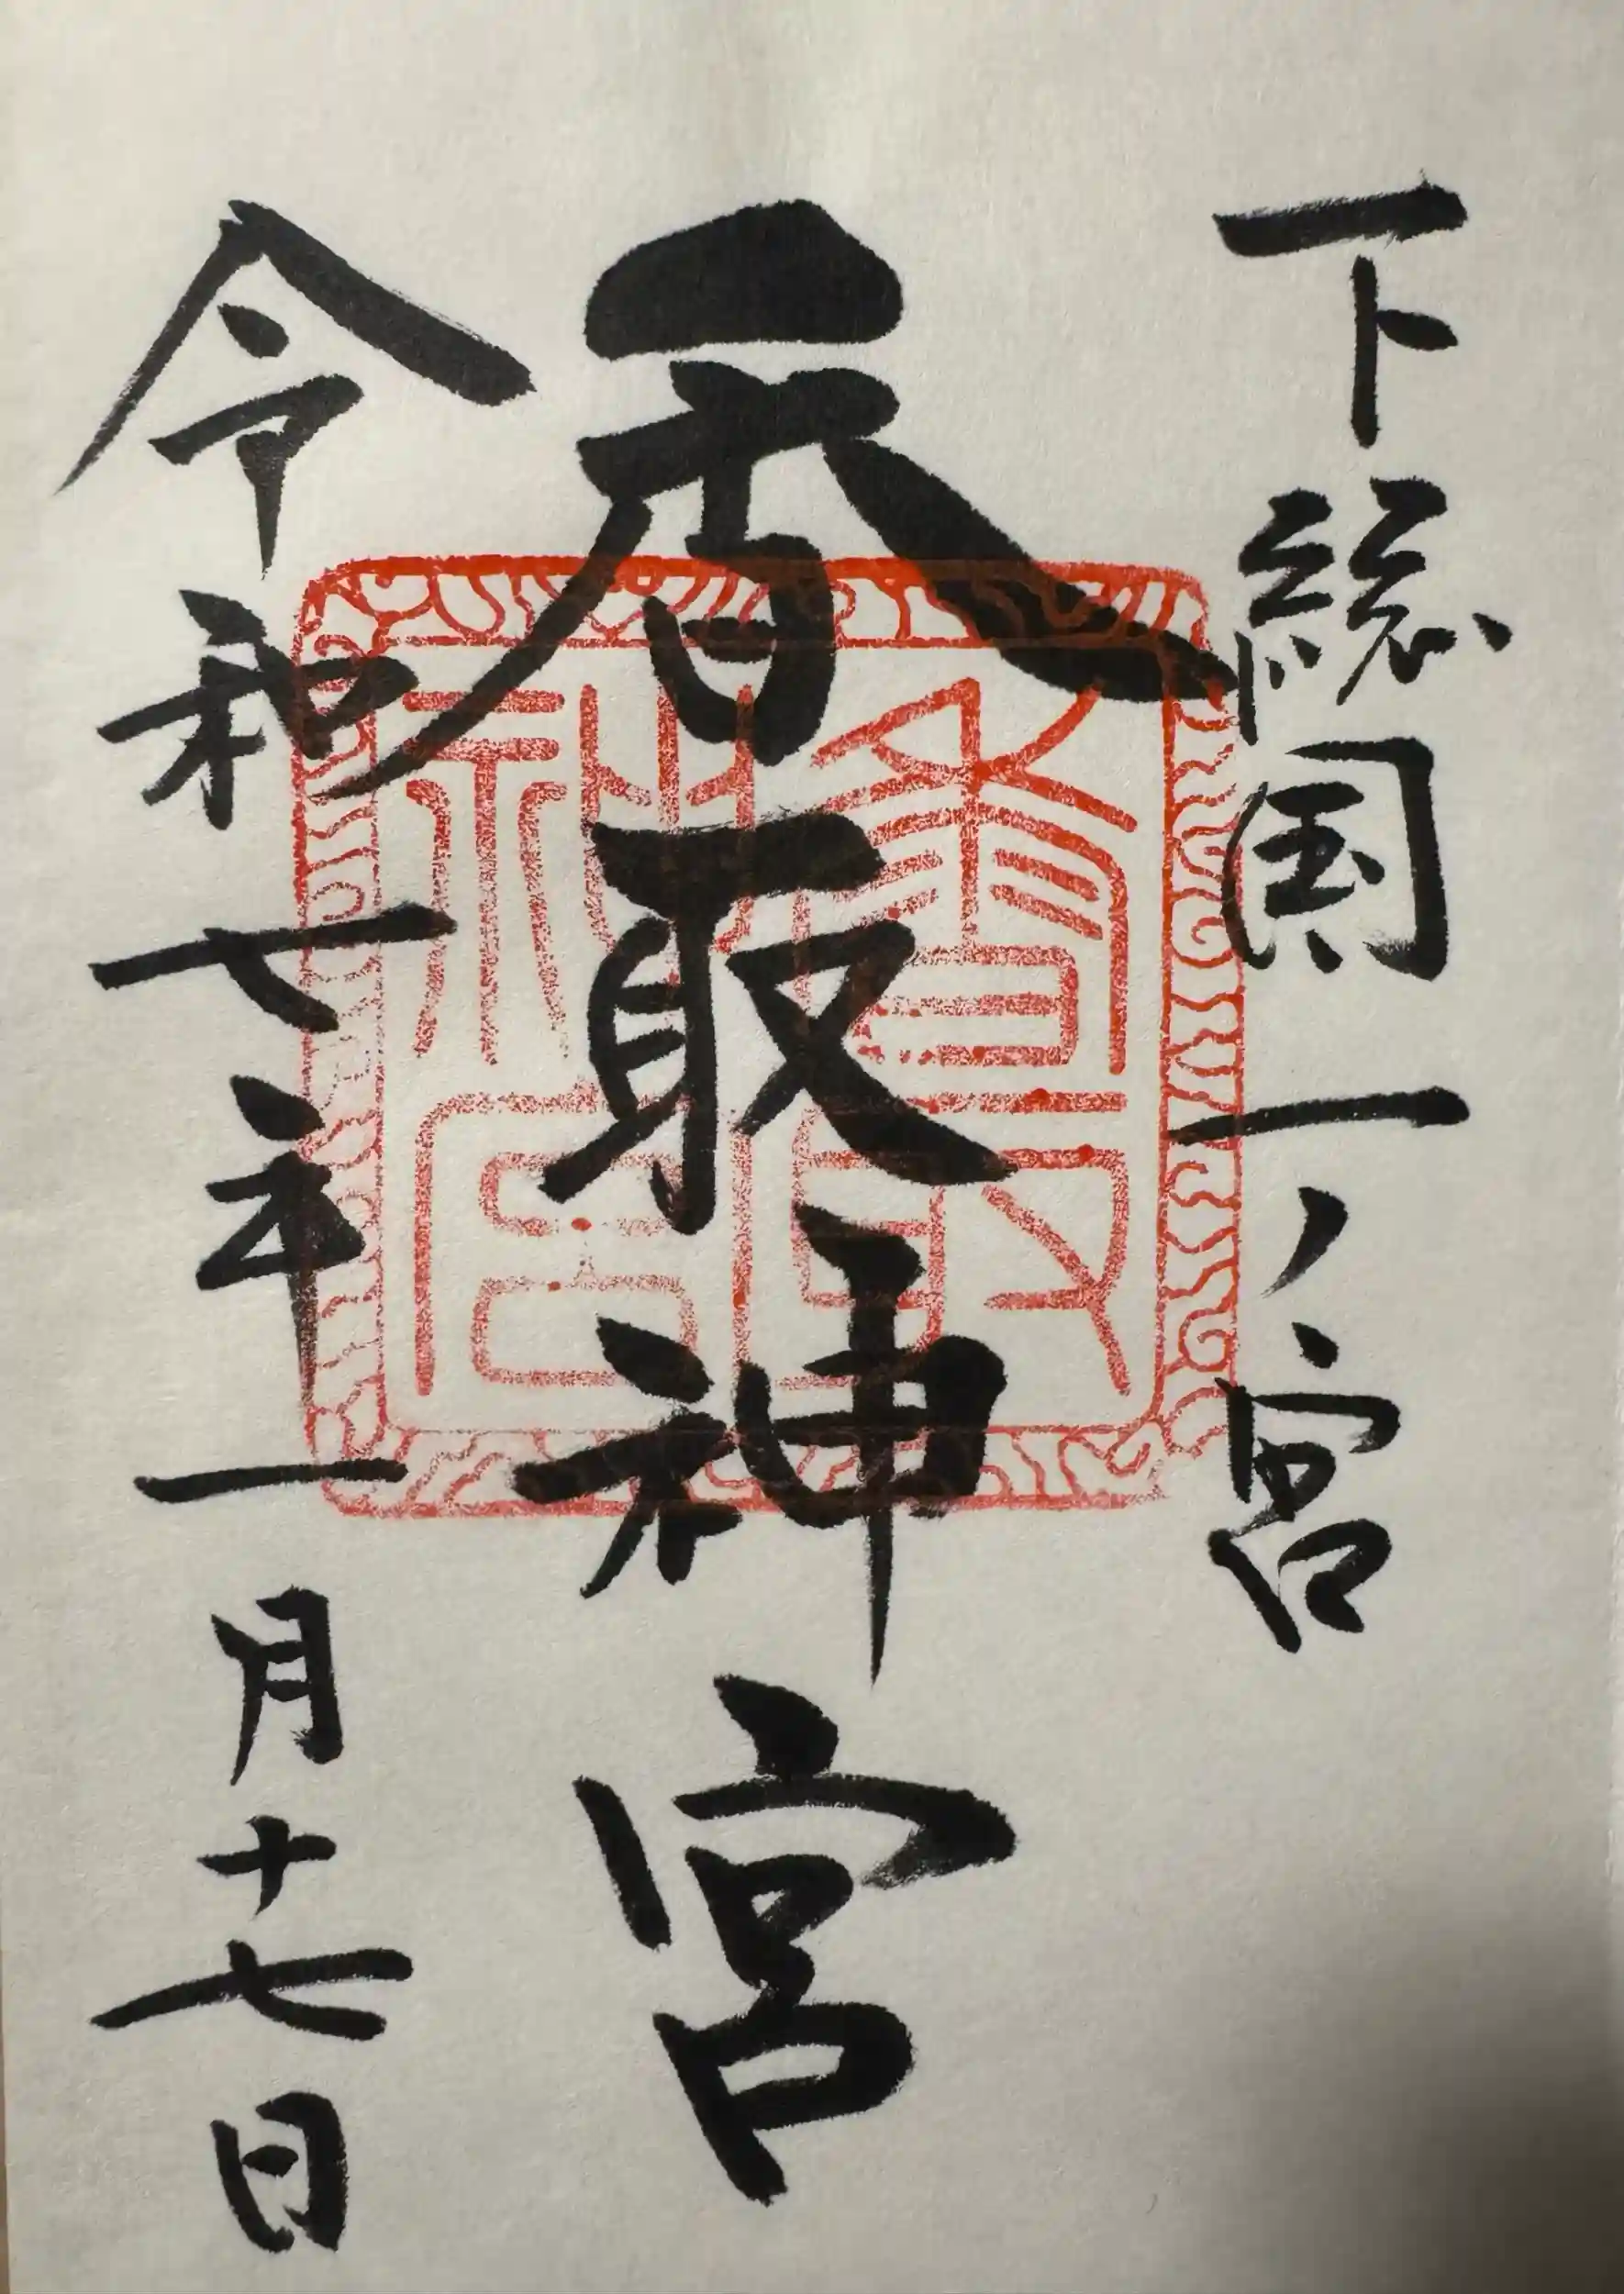 下総国一ノ宮
香取神宮
香取神宮
令和七年一月十七日